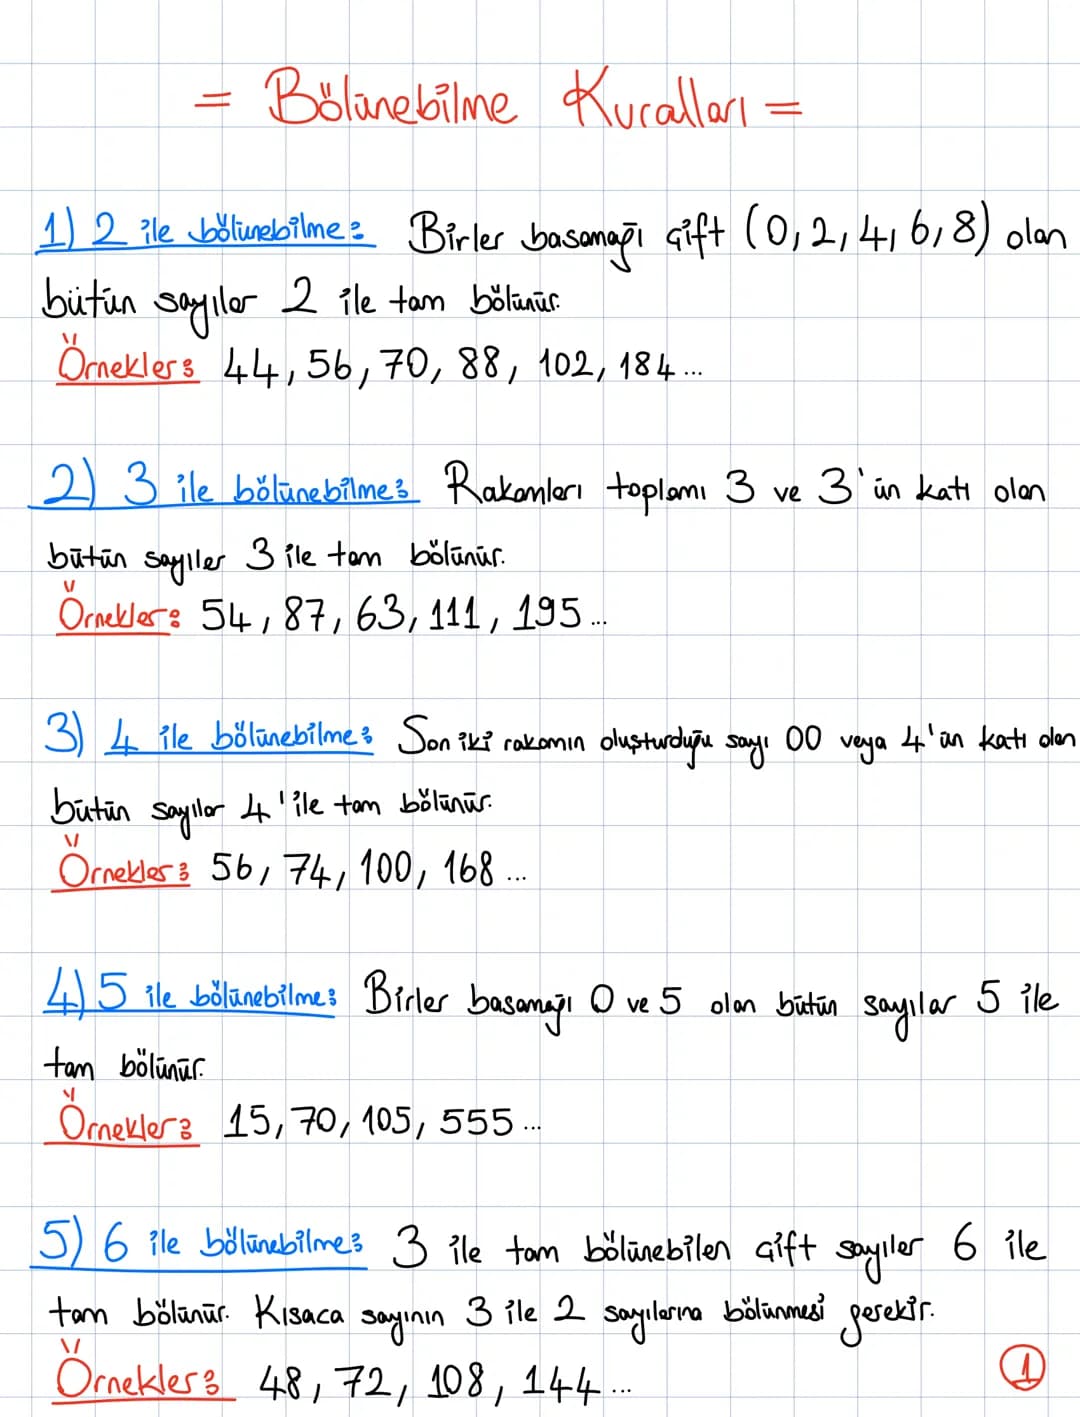 = Bölünebilme Kuralları =
1) 2 ile bölünebilme: Birler basamağı çift (0,2,4,6,8) olan
bütün sayılar 2 ile tam bölünür.
Örnekler: 44, 56, 70, 88, 102, 184...
2) 3 ile bölünebilme: Rakamları toplamı 3 ve 3'ün katı olan
bütün sayılar 3 ile tam bölünür.
Örnekler: 54, 87, 63, 111, 195...
3) 4 ile bölünebilme: Son iki rakamın oluşturduğu sayı 00 veya 4'ün katı olan
bütün sayılar 4'ile tam bölünür.
Örnekler: 56, 74, 100, 168...
4) 5 ile bölünebilme: Birler basamağı 0 ve 5 olan bütün sayılar 5 ile
tam bölünür.
Örnekler: 15, 70, 105, 555...
5) 6 ile bölünebilme: 3 ile tam bölünebilen çift sayılar 6 ile
tam bölünür. Kısaca sayının 3 ile 2 sayılarına bölünmesi gerekir.
Örnekler: 48, 72, 108, 144...
1